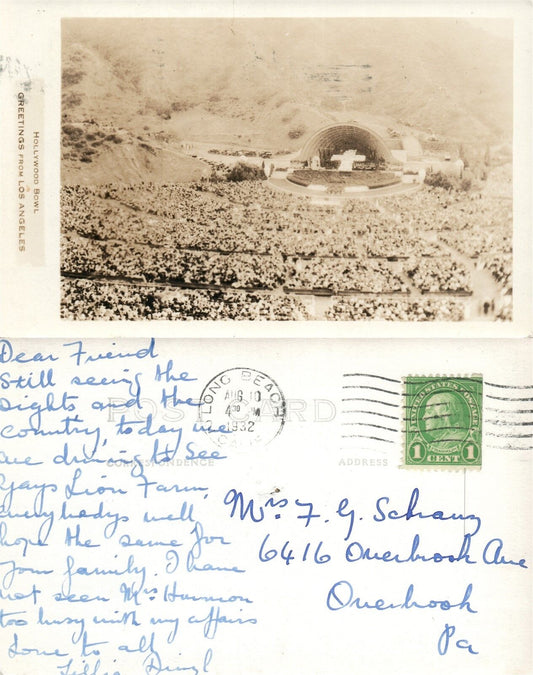 HOLLYWOOD BOWL
GREETINGS FROM LOS ANGELES
Dear Friend
Still seeing the
sights and the
country, today we
are driving to See
Gays Lion Farm,
everybodys well
hope the same for
your family. I have
not seen Mrs Harmon
too busy with my affairs
Love to all
Lillie
POST CARD
CORRESPONDENCE
ADDRESS
LONG BEACH
AUG 10
4 30 PM
1932
CALIF.
UNITED STATES POSTAGE
1 1
CENT
Mrs F. G. Schanz
6416 Overbrook Ave
Overbrook
Pa